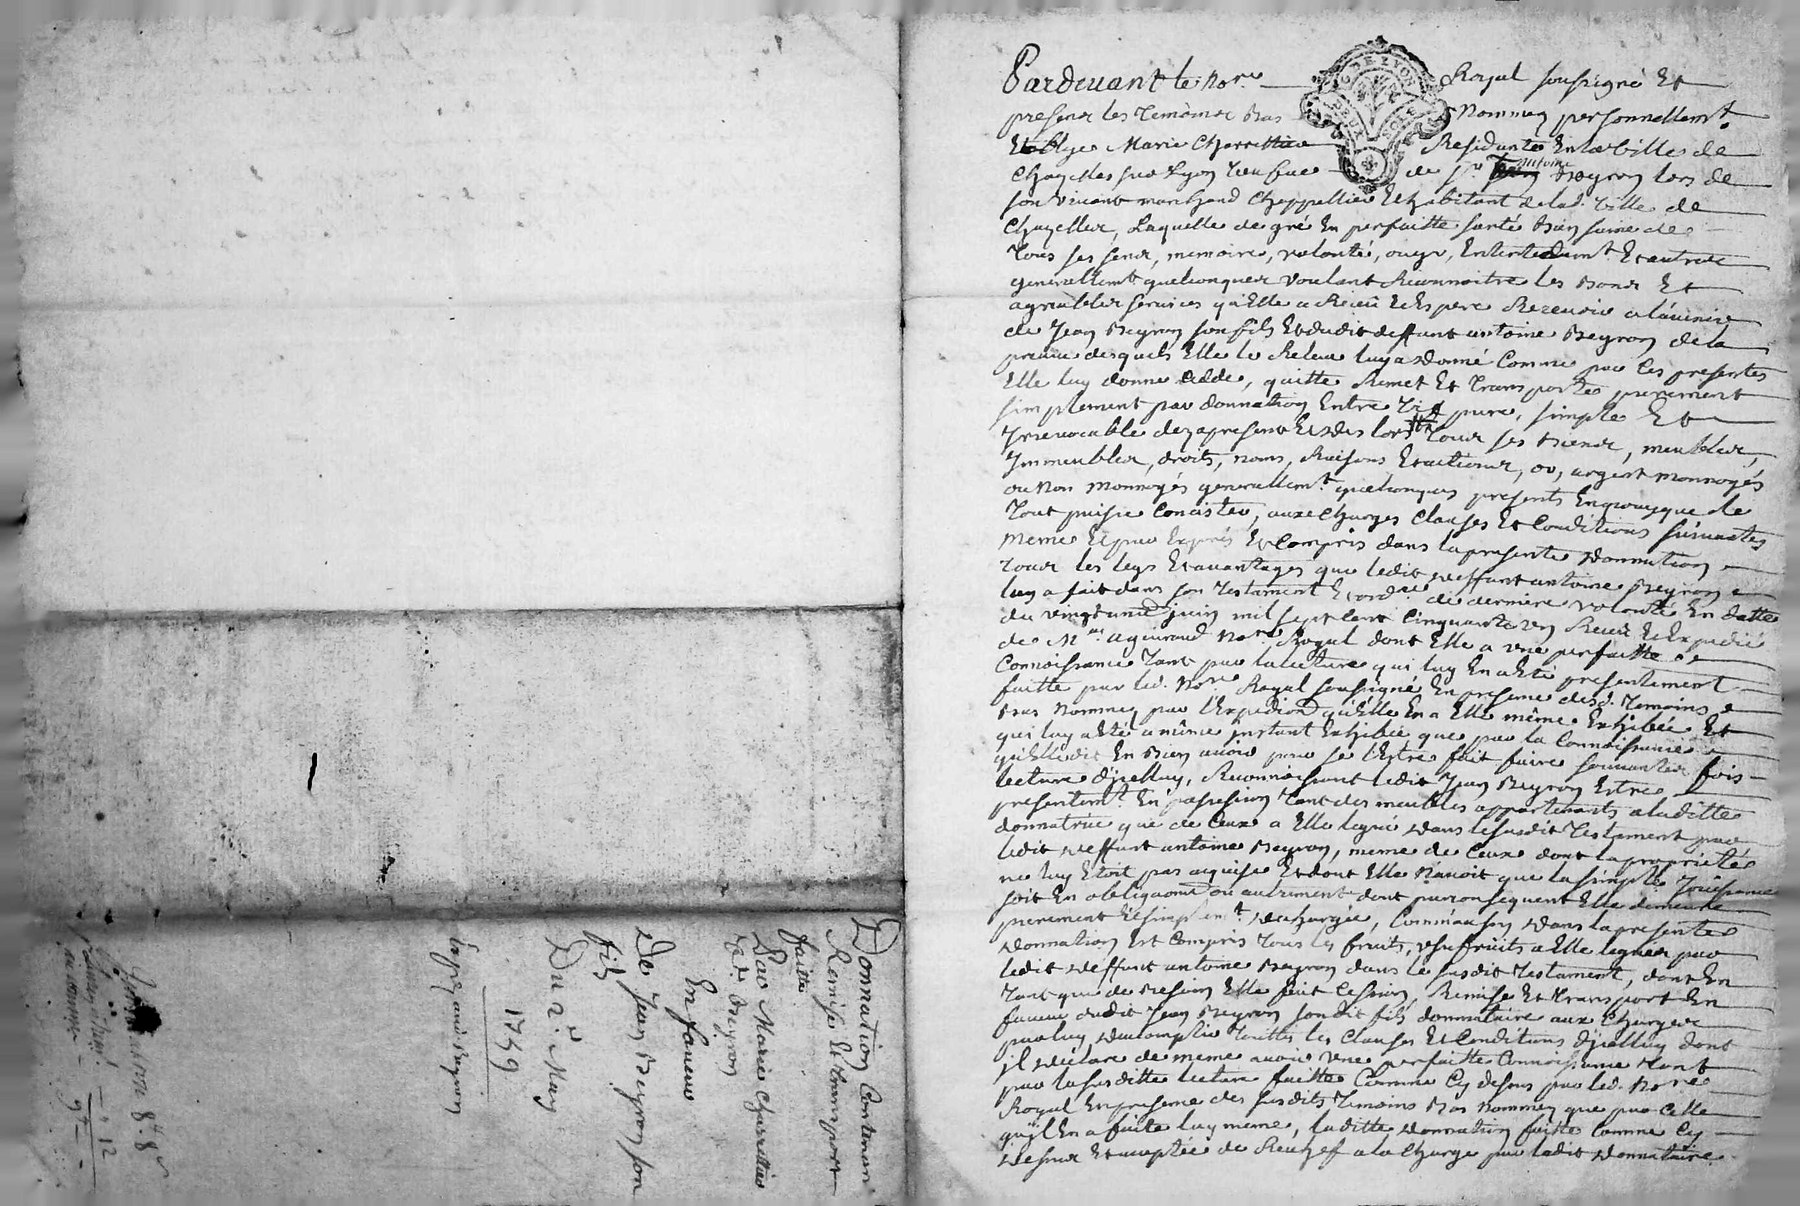 Donnation Contenan
Remise Et transport
faitte
Par Marie Charretier
Ve. Beyron
En faveur
De Jean Beyron son
fils
Du 2e. May
1759
Pardevant le Nore. Royal soussigné Et
presents les Temoins Bas Nommez personnellemt.
Etablye Marie Charrettier Residante En la Ville de
Chazelles sur Lyon veufve de Sr. antoine Beyron lors de
son vivant marchand Chappellier Et habitant de lad. Ville de
Chazelles, Laquelle de gré En perfaitte santé Bien saine de
Tous ses sens, memoire, volonté, ouye, Entendemt. Et autres
generallemt. quelconques voulant Reconnoitre les Bons Et
agreables services qu'Elle a Reçu Et Espere Recevoir a l'avenir
de Jean Beyron son fils Et dudit deffunt antoine Beyron de la
preuve desquels Elle le Releve luy a Donné Comme par Ces presentes
Elle luy donne Cedde, quitte Remet Et Transporte purement
simplement par donnation Entre vifs pure, simple Et
Irrevocable dez apresent Et des lors Tous ses Biens, meubles,
Immeubles, droits, noms, Raisons Et actions, or, argent monnoyés
ou Non monnoyés generallemt. quelconques presents En quoyque le
Tout puisse Concister, aux Charges Clauses Et Conditions suivantes
meme Et par Exprés Et Compris dans la presente Donnation
Tous les legs Et avantages que ledit deffunt antoine Beyron
luy a fait dans son Testament Et ordre de derniere volonté En datte
du vingt unieme juin mil sept Cent Cinquante un Recu Et Expedié
de Me. aguiraud Nore. Royal dont Elle a une perfaitte
Connoissance Tant par la lecture qui luy En a Eté presentement
faitte par led. Nore. Royal soussigné En presence desd. Temoins
Bas Nommez par l'Expedion. qu'Elle En a Elle même Exhibée Et
qui luy a Eté a même instant Exhibée que par la Connoissance
qu'Elle dit En Bien avoir pour se l'Estre fait faire souventes fois
lecture d'jcelluy, Reconnoissant ledit Jean Beyron Estre
presentemt. En possession Tant des meubles appartenants a laditte
donnatrice que de Ceux a Elle legué Dans le susdit Testament par
ledit deffunt antoine Beyron, meme de Ceux dont la proprieté
ne luy Etoit pas acquise Et dont Elle N'avoit que la simple Joüissance
soit En obligaons. ou autrement dont par consequent Elle demeure
purement Et simplemt. dechargée, Comm'aussy Dans la presente
Donnation Est Compris Tous les fruits, usufruits a Elle legués par
ledit deffunt antoine Beyron dans le susdit Testament, dont En
Tant que de Besoin Elle fait Cession, Remise Et transport En
faveur dudit Jean Beyron sondit fils donnataire aux Charges
par luy daccomplir Touttes les Clauses Et Conditions d'jcelluy dont
jl declare de meme avoir une perfaitte Connoissance Tant
par la susditte lecture faitte Comme Cy dessus par led. Nore.
Royal En presence des susdits Temoins Bas Nommez que par Celle
qu'jl En a faite luy meme, laditte Donnation faitte Comme Cy
dessus Et acceptée de Rechef a la Charge par ledit Donnataire